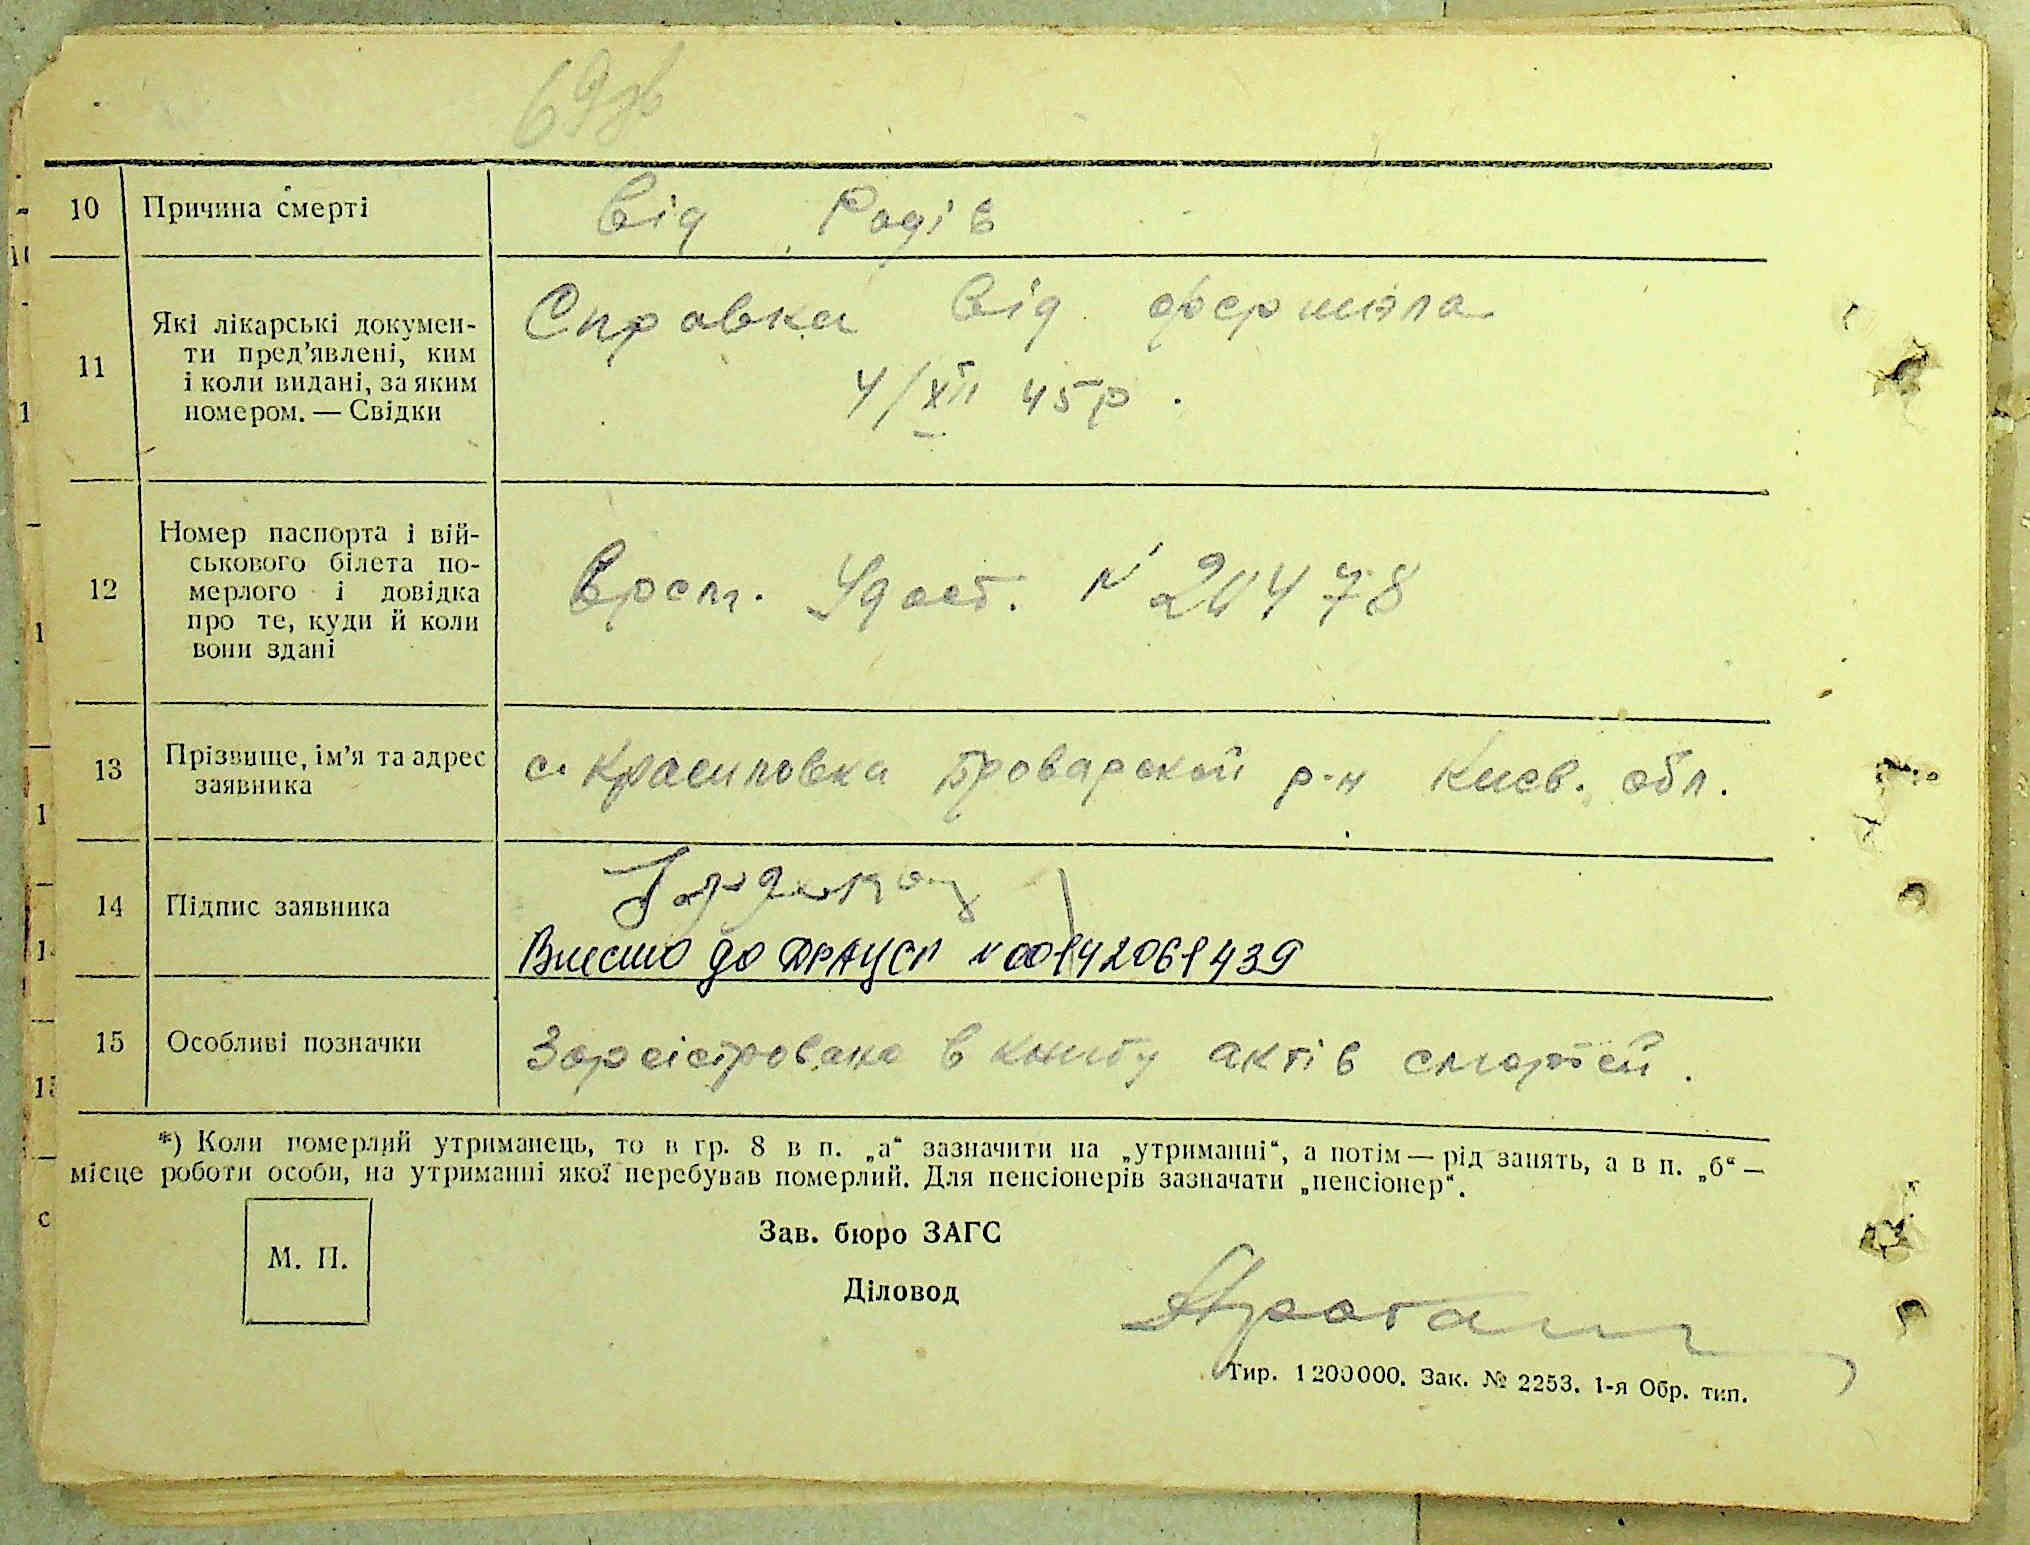 69зв
10 Причина смерті Від Родів
11 Які лікарські докумен-
ти пред’явлені, ким
і коли видані, за яким
номером. — Свідки
Справка від фершала
4/XII 45р.
12 Номер паспорта і вій-
ськового білета по-
мерлого і довідка
про те, куди й коли
вони здані
Врем. Удост. №
13 Прізвище, ім’я та адрес
заявника
с. Красиловка Броварской р-н Киев. обл.
14 Підпис заявника
Внесено до ДРАЦСГ N 00142061439
15 Особливі позначки Зареістровано в книгу актів смертей.
*) Коли померлий утриманець, то в гр. 8 в п. „а“ зазначити на „утриманні“, а потім — рід занять, а в п. „б“ —
місце роботи особи, на утриманні якої перебував померлий. Для пенсіонерів зазначати „пенсіонер“.
М. П.
Зав. бюро ЗАГС
Діловод
Тир. 1 200000. Зак. № 2253. 1-я Обр. тип.